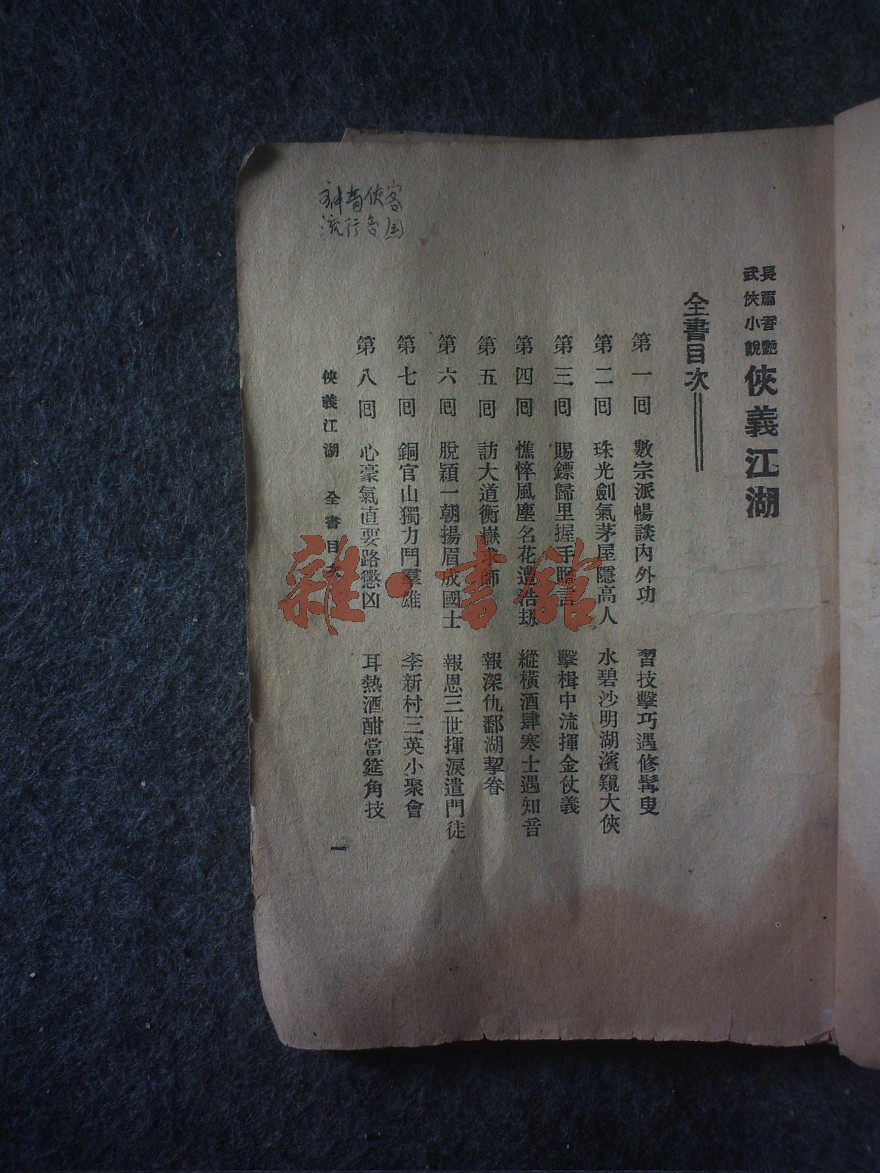 長篇香艷
武俠小說
俠義江湖
全書目次
第一回 數宗派暢談內外功 習技擊巧遇修髯叟
第二回 珠光劍氣茅屋隱高人 水碧沙明湖濱窺大俠
第三回 賜鏢歸里握手贈言 擊楫中流揮金仗義
第四回 憔悴風塵名花遭浩劫 縱橫酒肆寒士遇知音
第五回 訪大道衡嶽求師 報深仇鄱湖挈眷
第六回 脫穎一朝揚眉成國士 報恩三世揮淚遣門徒
第七回 銅官山獨力鬥羣雄 李新村三英小聚會
第八回 心豪氣直要路懲凶 耳熱酒酣當筵角技
俠義江湖 全書目次
一
俠客
流行各国
雜·書舘